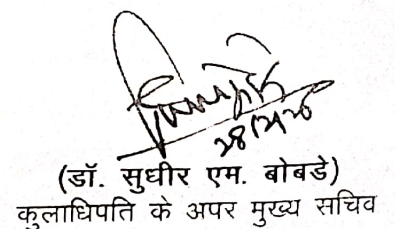 (डॉ. सुधीर एम. बोबडे)
कुलाधिपति के अपर मुख्य सचिव